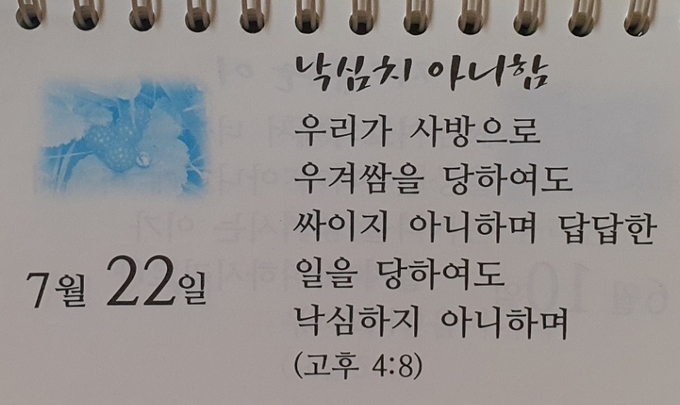 낙심치 아니함
우리가 사방으로
우겨쌈을 당하여도
싸이지 아니하며 답답한
일을 당하여도
낙심하지 아니하며
(고후 4:8)
7월 22일